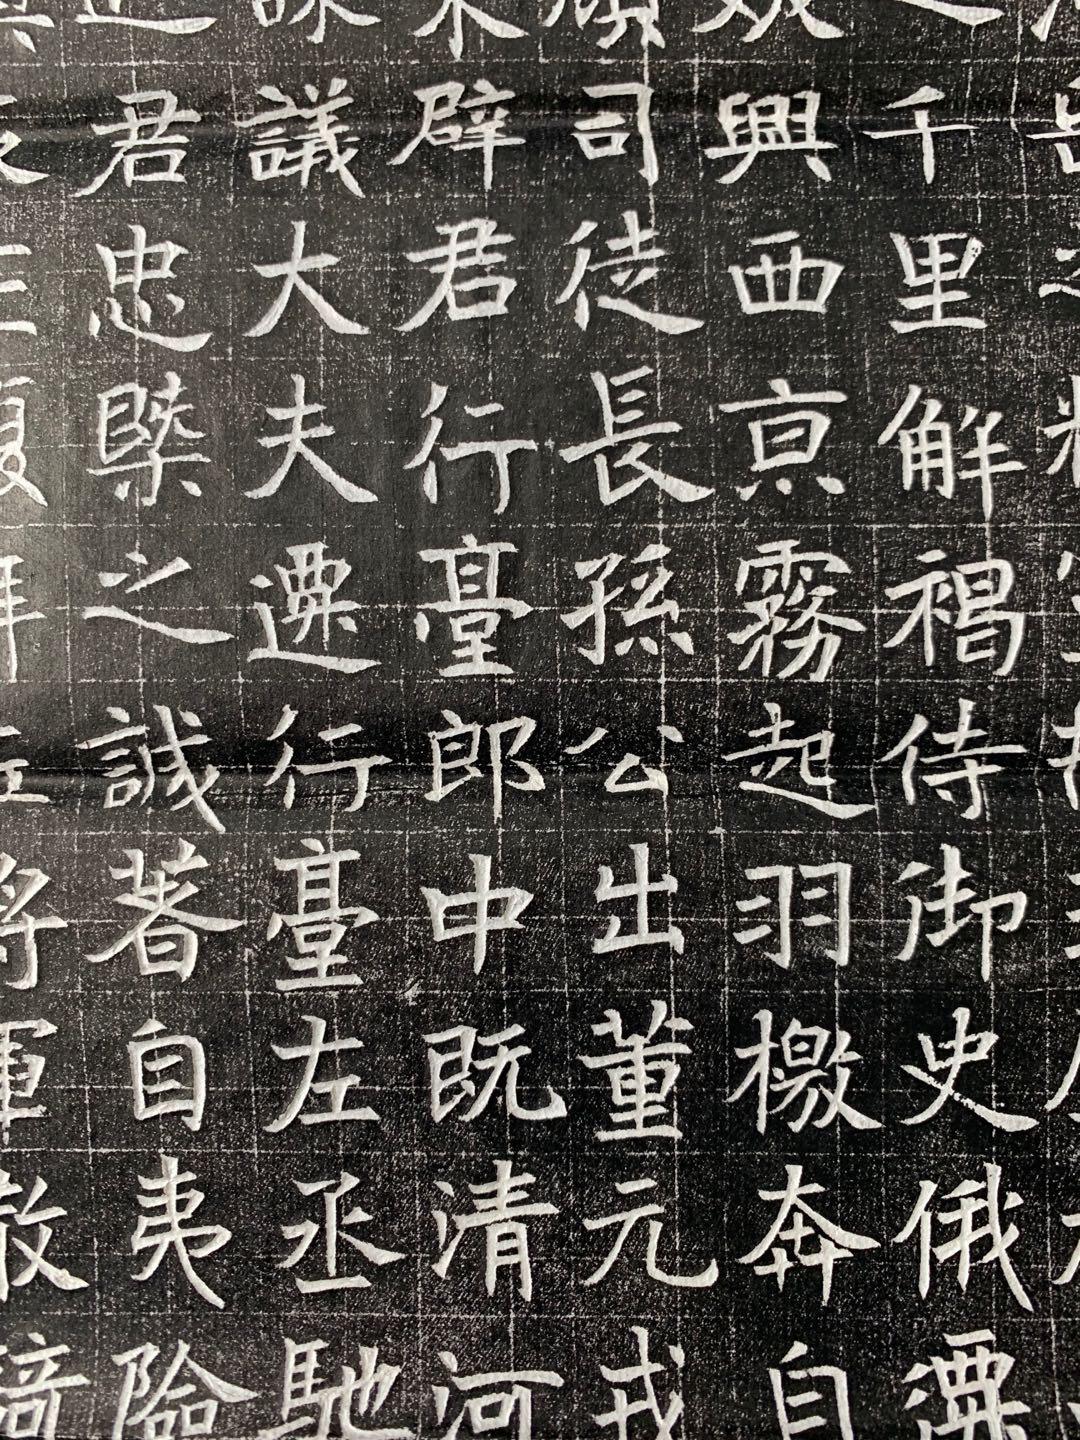 千里解褐侍御史俄遷
興西京霧起羽檄奔自
司徒長孫公出董元戎
辟君行臺郎中既清河
議大夫遷行臺左丞馳
君忠槩之誠著自夷險
將軍散騎